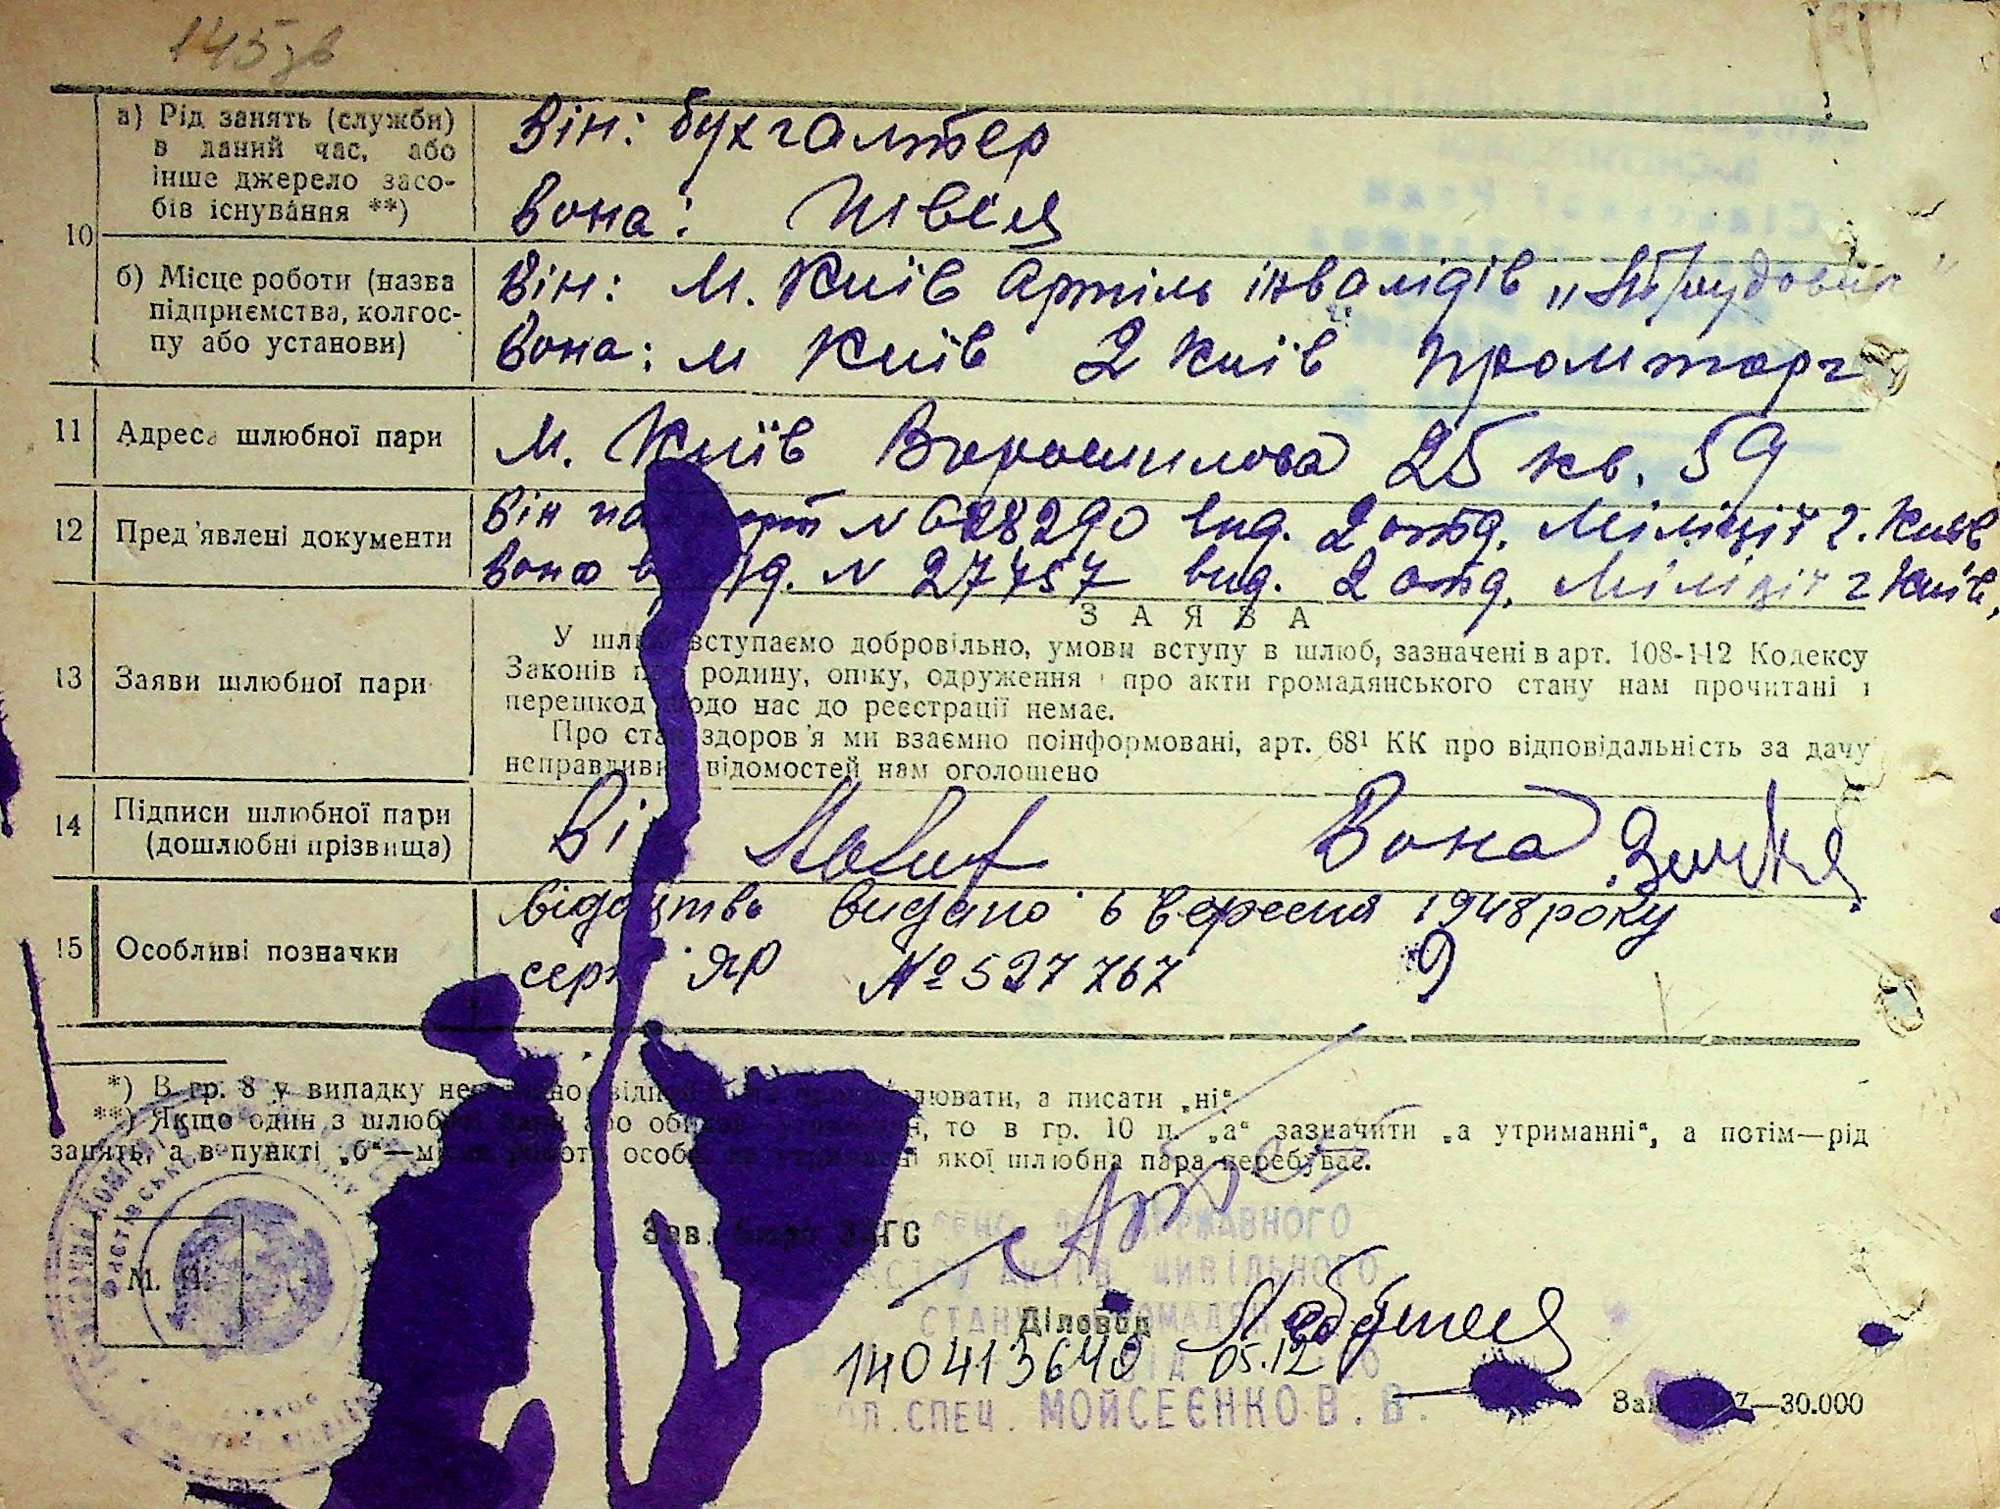 145зв
10
а) Рід занять (служби)
в даний час, або
інше джерело засо-
бів існування **)
Він: бухгалтер
Вона: швея
б) Місце роботи (назва
підприємства, колгос-
пу або установи)
Він: М. Київ артіль інвалідів „Трудовик"
Вона: М Київ 2 Київ Промторг
11 Адреса шлюбної пари
М. Київ Ворошилова 25 кв. 59
12 Пред'явлені документи
Він N 628290 вид. 2 отд. Міліції г. Київ
Вона N 27457 вид. 2 отд. Міліції г Київ,
ЗАЯВА
13 Заяви шлюбної пари
У вступаємо добровільно, умови вступу в шлюб, зазначені в арт. 108-112 Кодексу
Законів родину, опіку, одруження і про акти громадянського стану нам прочитані і
перешкод щодо нас до реєстрації немає.
Про стан здоров'я ми взаємно поінформовані, арт. 68¹ КК про відповідальність за дачу
неправдивих відомостей нам оголошено
14 Підписи шлюбної пари
(дошлюбні прізвища)
Ві Вона
15 Особливі позначки
відоцтво видано 6 вересня 1948 року
сер ЯР № 527767 9
*) В гр. 8 у випадку а писати „ні"
**) Якщо один з або то в гр. 10 п. „а" зазначити „а утриманні", а потім—рід
занять, а в пункті „б"— якої шлюбна пара перебуває.
Зав. бюро ЗАГС
М. П.
ДЕРЖАВНОГО
АКТІВ ЦИВІЛЬНОГО
СТАНУ
Діловод
140413640 05.12
СПЕЦ. МОЙСЕЄНКО В. В.
7—30.000